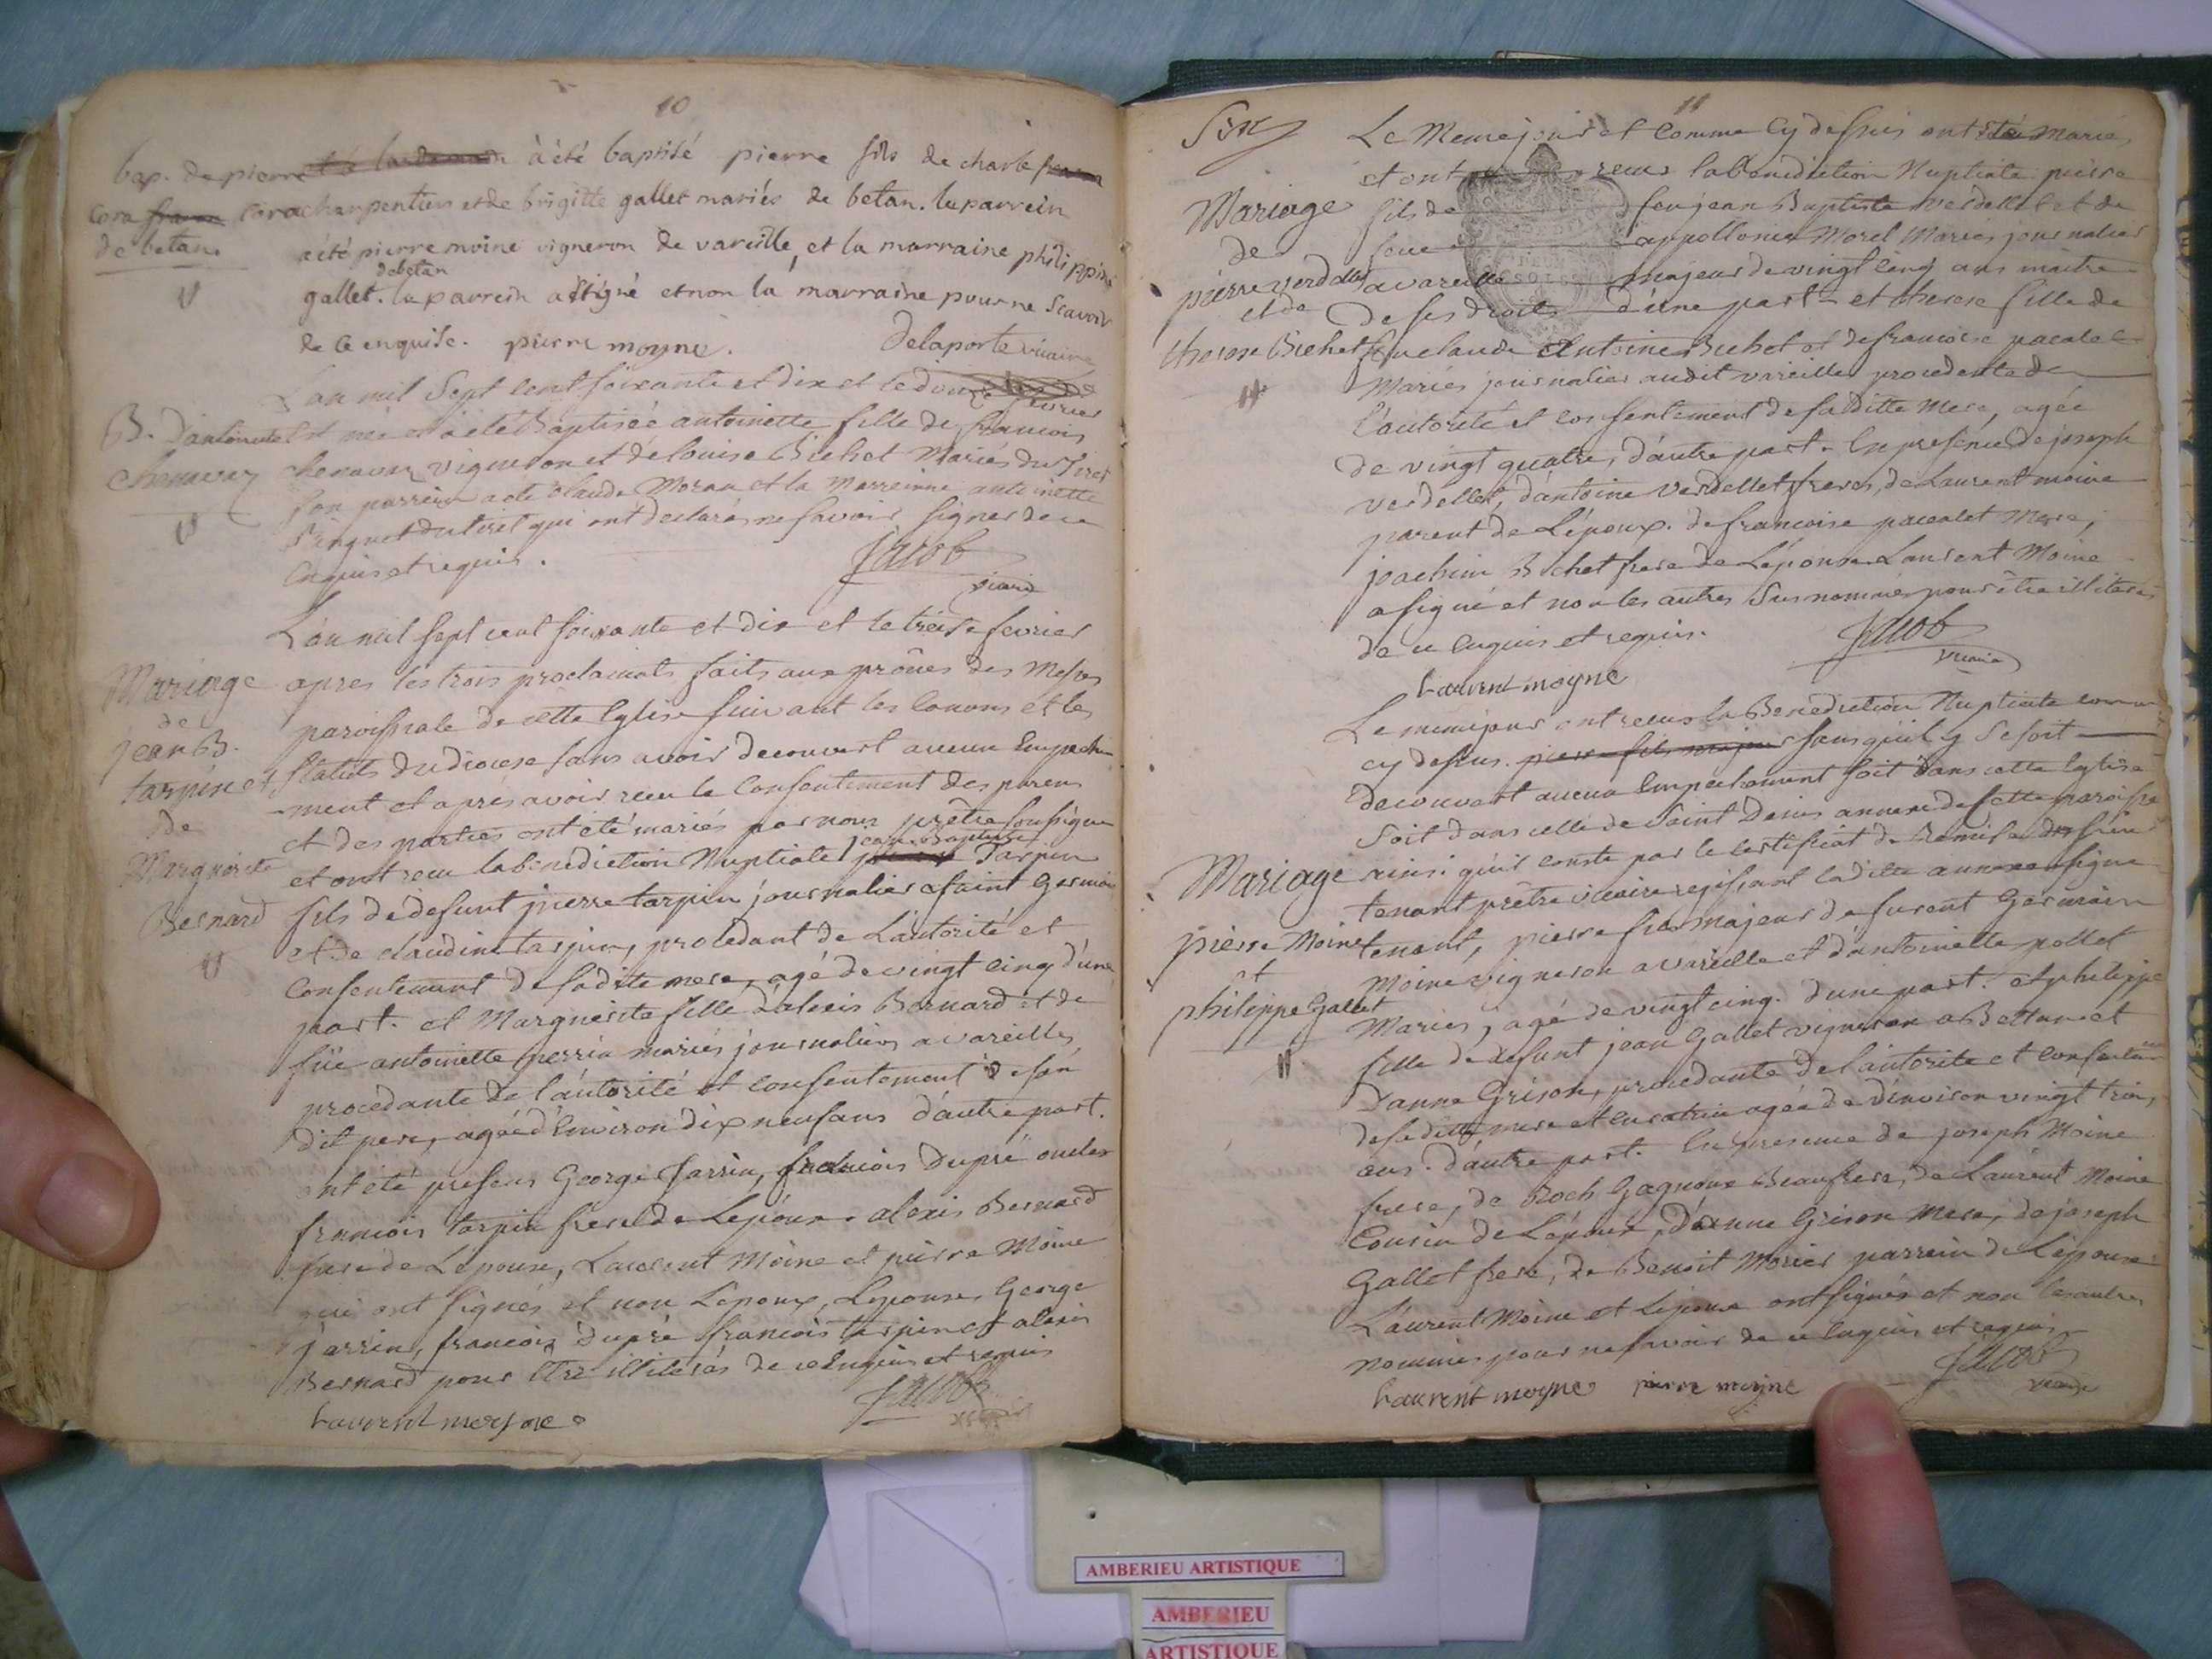 10
bap. de pierre à été baptisé pierre fils de charle
Cora charpentier et de brigitte gallet mariés de betan. le parrein
de betan. a été pierre moine vigneron de vareille, et la marraine philippine
debetan
gallet. le parrein a signé et non la marraine pour ne scavoir
de ce enquise. pierre moyne. Delaporte vicaire
L'an mil sept cent soixante et dix et le douze fevrier
B. D'antoinette est née et a été Baptisée antoinette fille de francois
chenavaz chenavaz vigneron et de louise Bichet Mariés du Tiret
son parrein a été claude Moran et la Marreinne antoinette
du tiret qui ont declarés ne savoir signer de ce
enquis et requis.
Jacob
vicaire
L'an mil sept cent soixante et dix et le treise fevrier
Mariage apres les trois proclamats faits aux prônes des Messes
de paroissiale de cette Eglise suivant les canons et les
jean B. statuts du diocese sans avoir decouvert aucun Empeche-
tarpin et -ment et apres avoir recu le Consentement des parens
de et des parties ont été mariés par nous prêtre soussigné
jean Baptiste
Marguerite et ont recu la benediction Nuptiale Tarpin
Bernard fils de defunt pierre tarpin journalier a saint Germain
et de claudine tarpin, procedant de L'autorité et
Consentement de sadite mere, agé de vingt cinq d'une
part. et Marguerite fille d'alexis Bernard et de
füe antoinette perrin mariés journaliers a vareilles
procedante de l'autorité et consentement de son
dit pere, agée d'Environ dix neuf ans d'autre part.
ont été presens George Jarrin, francois Dupré oncles
francois tarpin frere de L'epoux. alexis Bernard
pere de L'epouse, Laurent Moine et pierre Moine
qui ont signés et non L'epoux, L'epouse, George
jarrin, francois dupré francois tarpin et alexis
Bernard pour être illiterés de ce Enquis et requis
Jacob
Laurent moyne
11
Le Meme jour et Comme Cy dessus ont été Mariés
et ont recus la benediction Nuptiale pierre
Mariage fils de feu jean Baptiste verdellet et de
de feue appollonie Morel Mariés journalier
pierre verdellet a vareille majeur de vingt cinq ans maitre
et de de ses droits d'une part et therese fille de
therese Bichet feu claude Antoine Bichet et de francoise pacalet
Mariés journalier audit vareilles procedente de
l'autorité et consentement de saditte Mere, agée
de vingt quatre, d'autre part. En presence de joseph
verdellet, d'antoine verdellet freres, de Laurent moine
parent de L'époux. de francoise paccalet Mere,
joachim Bichet frere de L'epouse Laurent Moine
a signé et non les autres susnommés pour être illiterés
de ce Enquis et requis.
Jacob
vicaire
Laurent moyne
Le meme jour ont recus la Benediction Nuptiale comme
cy dessus. pierre fils majeur sans qu'il y se soit
decouvert aucun Empechement soit dans cette Eglise
soit dans celle de saint Denis annexe de cette paroisse
Mariage ainsi qu'il conste par le certificat de Remise
prêtre vicaire regissant ladite annexe
pierre Moine pierre fils majeur de furent Germain
et Moine vigneron a vareille et d'antoinette pollet
philippe Gallet Mariés, agé de vingt cinq. d'une part. et philippe
fille de defunt jean Gallet vigneron a Bettan et
D'anne Grison, procedante de l'autorité et consentem
de saditte mere et curatrice agée de d'environ vingt trois
ans. d'autre part. En presence de joseph Moine
frere, de Roch Gagnoux Beaufrere, de Laurent Moine
Cousin de L'epoux, d'anne Grison Mere, de joseph
Gallet frere, de Benoit Morier parrein de L'epouse
Laurent Moine et L'epoux ont signés et non les autres
nommés pour ne savoir de ce Enquis et requis
Jacob
vicaire
Laurent moyne pierre moyne
AMBERIEU ARTISTIQUE
AMBERIEU
ARTISTIQUE